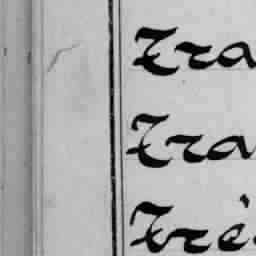 Tra
Tra
Trè